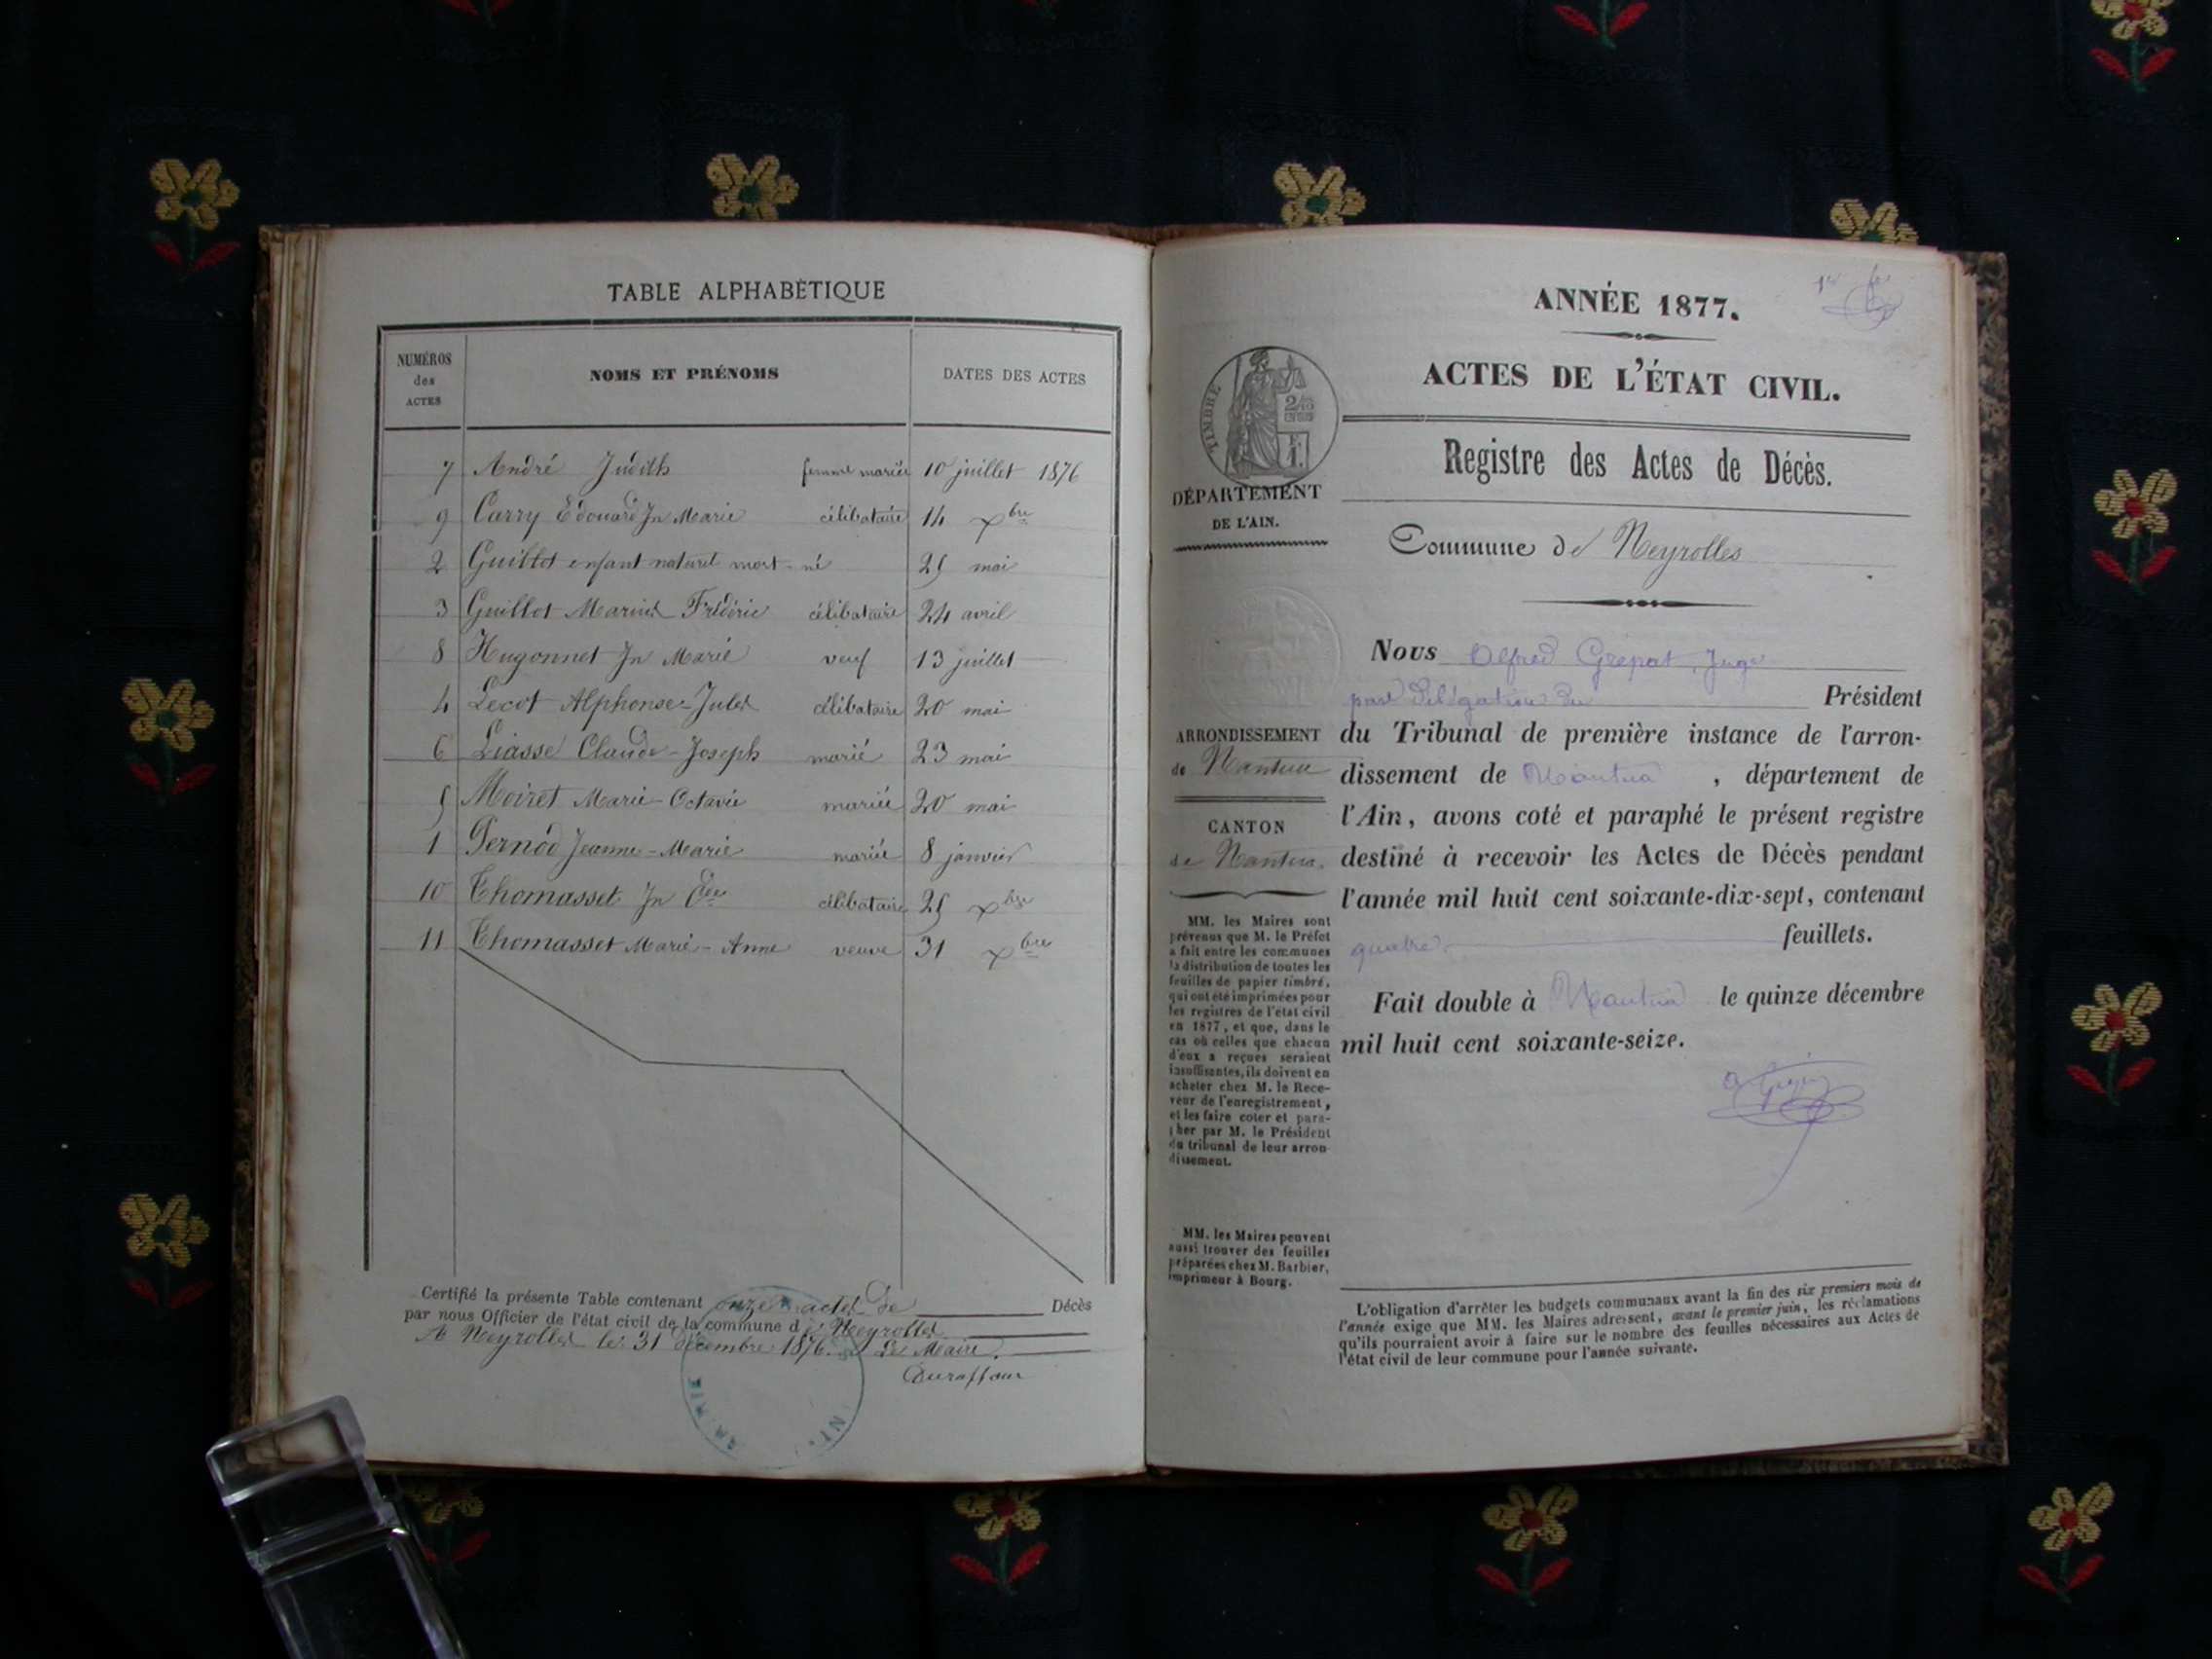 TABLE ALPHABÉTIQUE
NUMÉROS des ACTES NOMS ET PRÉNOMS DATES DES ACTES
7 André Judith femme mariée 10 juillet 1876
9 Carry Edouard Jn Marie célibataire 14 Xbre
2 Guillot enfant naturel mort-né 25 mai
3 Guillot Marius Frédéric célibataire 24 avril
8 Hugonnet Jn Marie veuf 13 juillet
4 Lecot Alphonse-Jules célibataire 20 mai
6 Liasse Claude-Joseph marié 23 mai
5 Moiret Marie-Octavie mariée 20 mai
1 Pernod Jeanne-Marie mariée 8 janvier
10 Thomasset Jn célibataire 25 Xbre
11 Thomasset Marie-Anne veuve 31 Xbre
Certifié la présente Table contenant onze actes de Décès
par nous Officier de l'état civil de la commune de Neyrolles
A Neyrolles le 31 Décembre 1876. Le Maire.
Duraffour
MAIRIE
ANNÉE 1877.
ACTES DE L'ÉTAT CIVIL.
TIMBRE
Registre des Actes de Décès.
DÉPARTEMENT
DE L'AIN.
Commune de Neyrolles
Nous Alfred Grépat, Juge
par délégation du Président
ARRONDISSEMENT
de Nantua
du Tribunal de première instance de l'arron-
dissement de Nantua, département de
l'Ain, avons coté et paraphé le présent registre
CANTON
de Nantua.
destiné à recevoir les Actes de Décès pendant
l'année mil huit cent soixante-dix-sept, contenant
quatre feuillets.
Fait double à Nantua le quinze décembre
mil huit cent soixante-seize.
MM. les Maires sont
prévenus que M. le Préfet
a fait entre les communes
la distribution de toutes les
feuilles de papier timbré,
qui ont été imprimées pour
les registres de l'état civil
en 1877, et que, dans le
cas où celles que chacun
d'eux a reçues seraient
insuffisantes, ils doivent en
acheter chez M. le Rece-
veur de l'enregistrement,
et les faire coter et para-
pher par M. le Président
du tribunal de leur arron-
dissement.
MM. les Maires peuvent
aussi trouver des feuilles
préparées chez M. Barbier,
imprimeur à Bourg.
L'obligation d'arrêter les budgets communaux avant la fin des six premiers mois de
l'année exige que MM. les Maires adressent, avant le premier juin, les réclamations
qu'ils pourraient avoir à faire sur le nombre des feuilles nécessaires aux Actes de
l'état civil de leur commune pour l'année suivante.